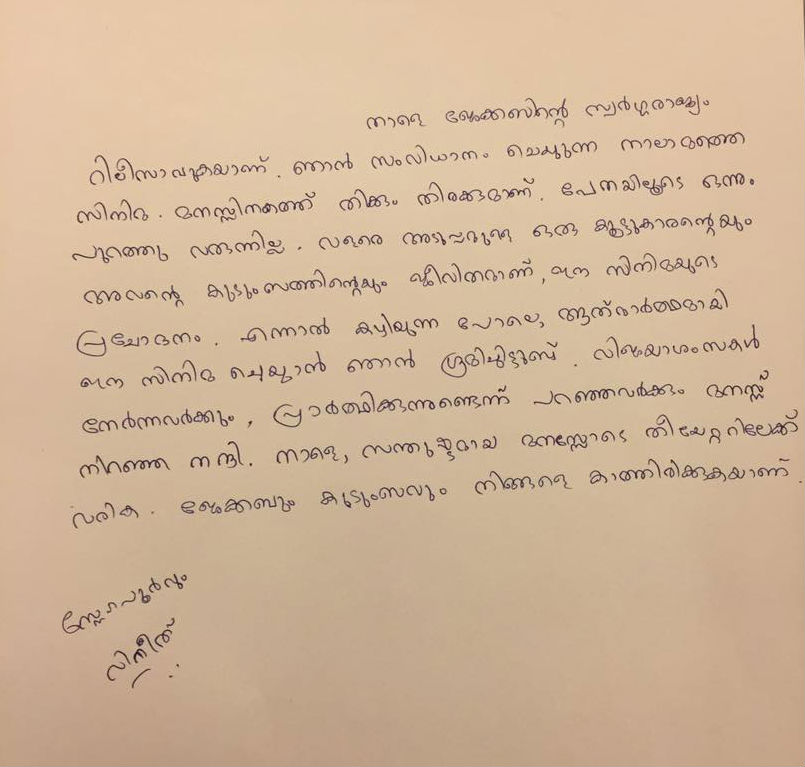 നാളെ ജേക്കബിന്റെ സ്വർഗ്ഗരാജ്യം
റിലീസാവുകയാണ്. ഞാൻ സംവിധാനം ചെയ്യുന്ന നാലാമത്തെ
സിനിമ. മനസ്സിനകത്ത് തിക്കും തിരക്കുമാണ്. പേനയിലൂടെ ഒന്നും
പുറത്തു വരുന്നില്ല. വളരെ അടുപ്പമുള്ള ഒരു കൂട്ടുകാരന്റെയും
അവന്റെ കുടുംബത്തിന്റെയും ജീവിതമാണ്, ഈ സിനിമയുടെ
പ്രചോദനം. എന്നാൽ കഴിയുന്ന പോലെ, ആത്മാർത്ഥമായി
ഈ സിനിമ ചെയ്യാൻ ഞാൻ ശ്രമിച്ചിട്ടുണ്ട്. വിജയാശംസകൾ
നേർന്നവർക്കും, പ്രാർത്ഥിക്കുന്നുണ്ടെന്ന് പറഞ്ഞവർക്കും മനസ്സ്
നിറഞ്ഞ നന്ദി. നാളെ, സന്തുഷ്ടമായ മനസ്സോടെ തീയേറ്ററിലേക്ക്
വരിക. ജേക്കബും കുടുംബവും നിങ്ങളെ കാത്തിരിക്കുകയാണ്.
സ്നേഹപൂർവ്വം
വിനീത്